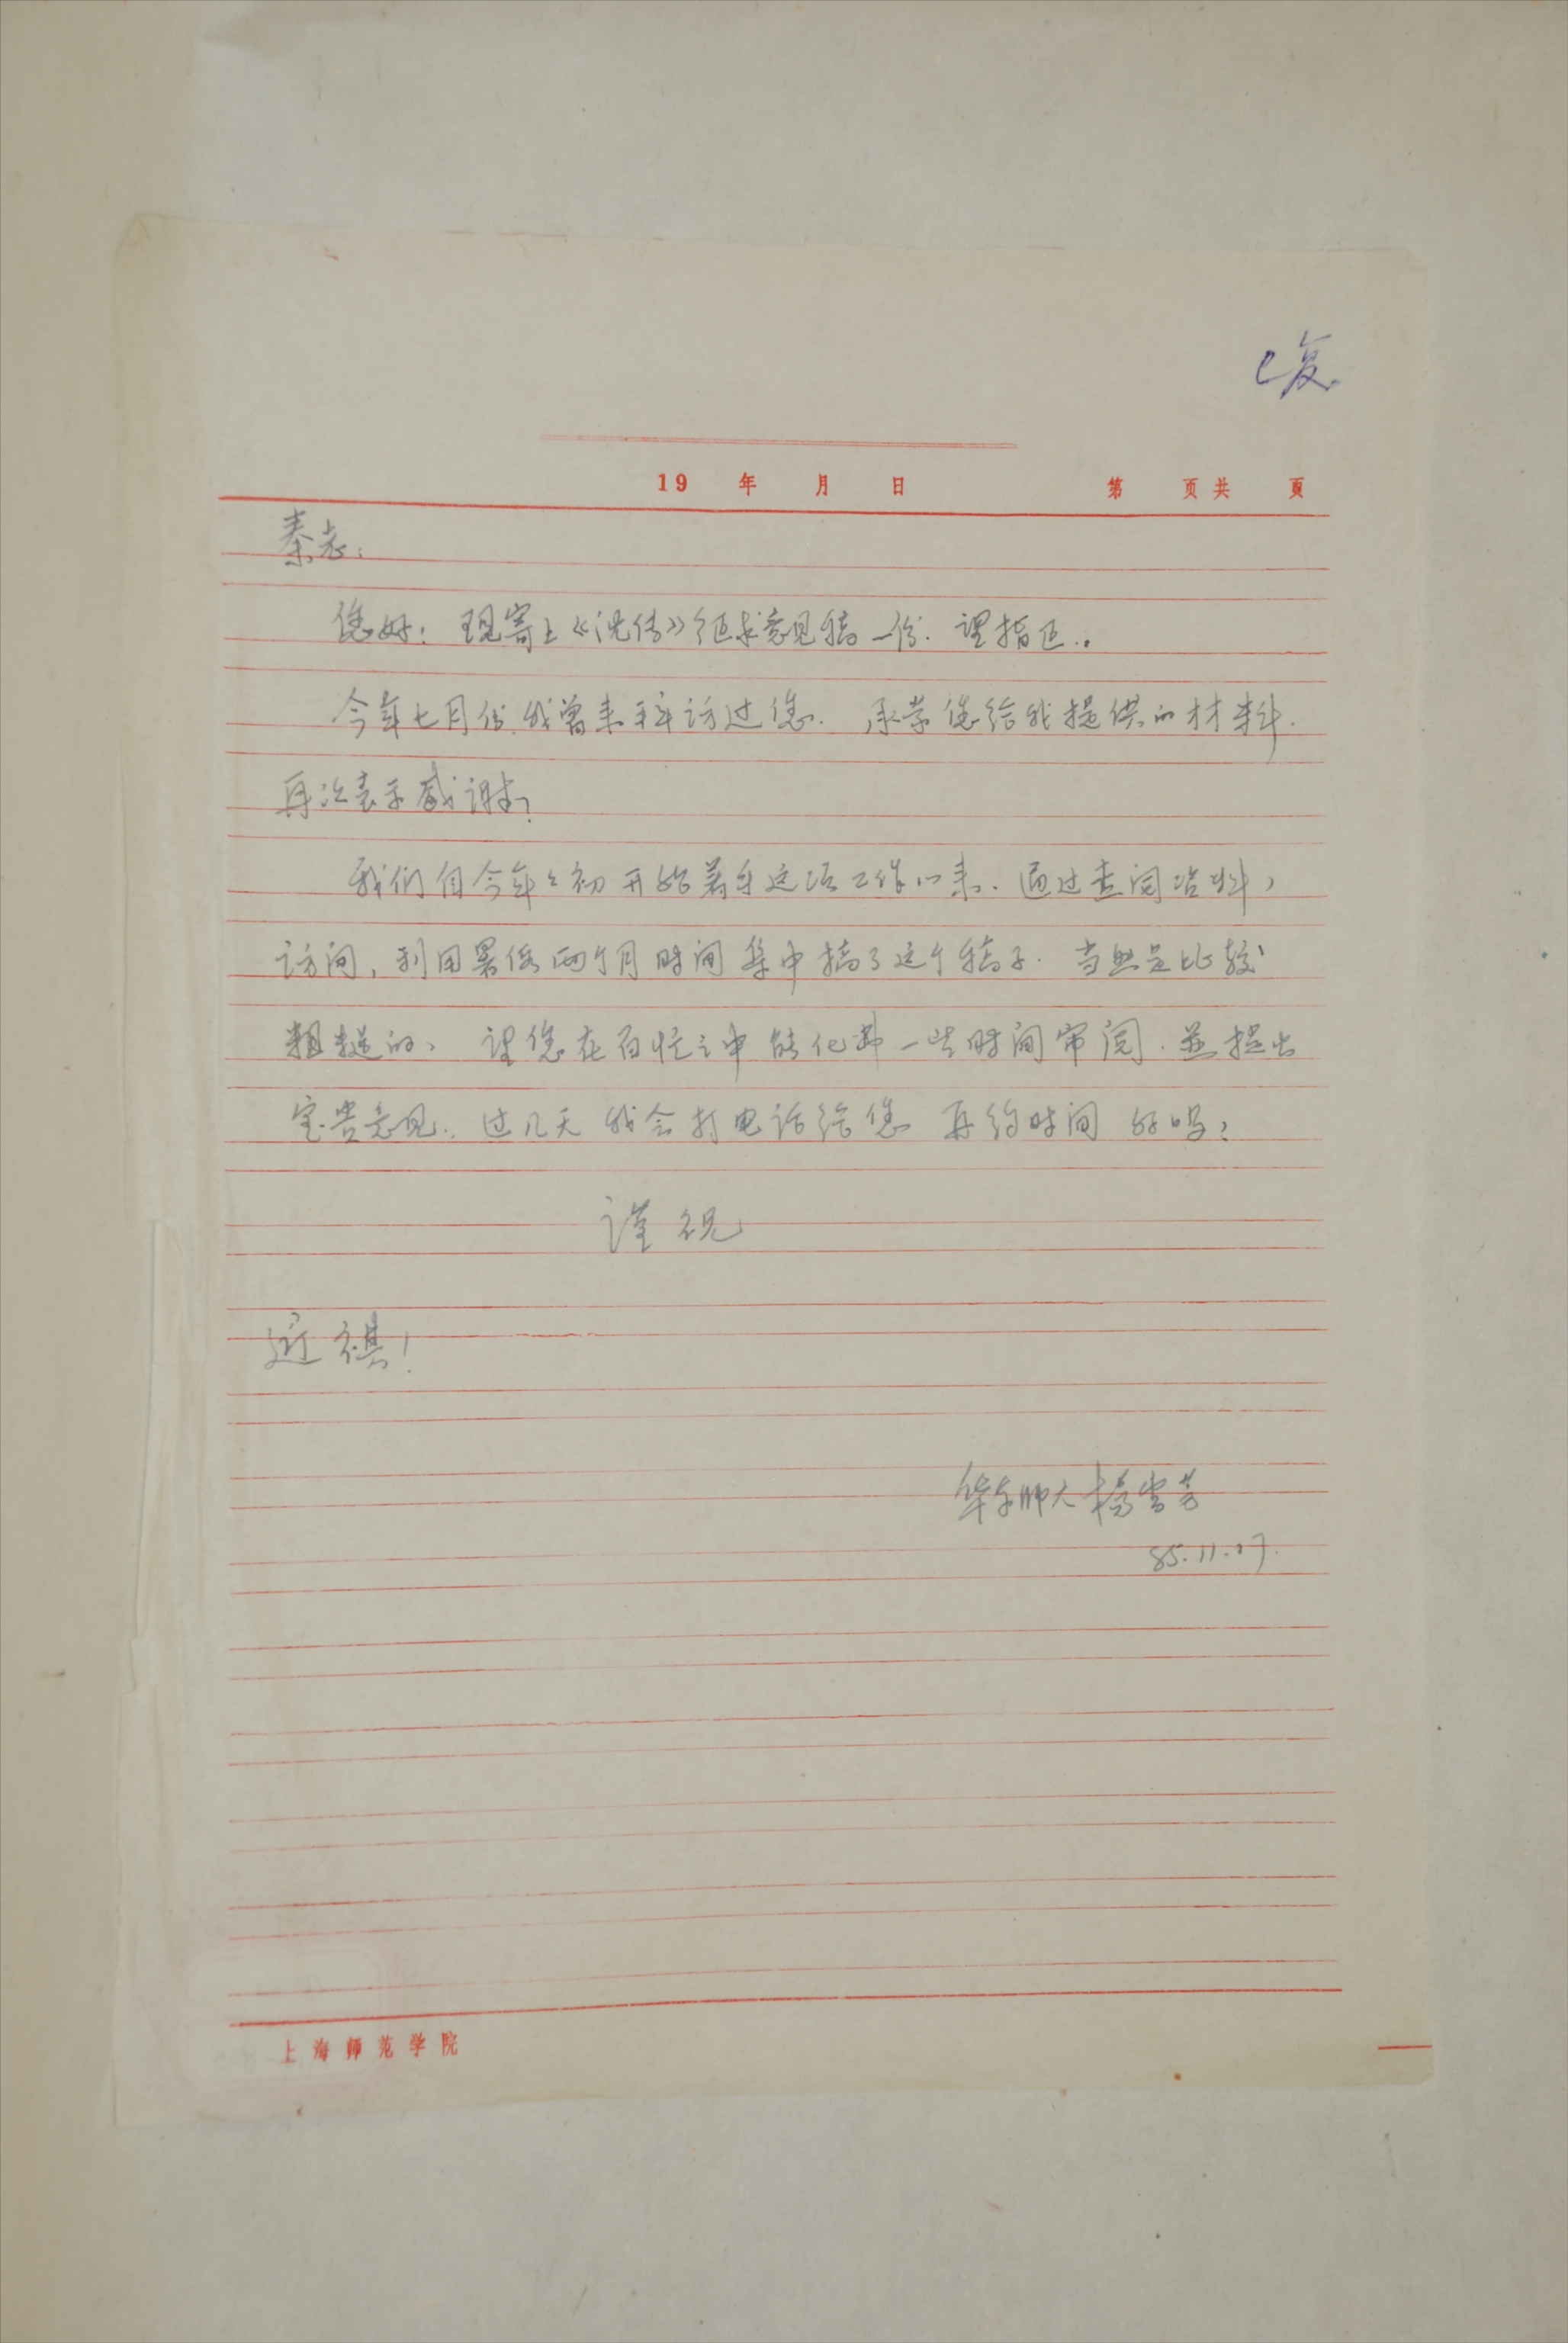 已复
19 年 月 日 第 页共 页
秦老：
您好！现寄上《沈传》征求意见稿一份．请指正．．
今年七月份，我曾来拜访过您．承蒙您给我提供的材料．
再次表示感谢！
我们自今年年初开始着手这项工作以来．通过查阅资料，
访问，利用暑假两个月时间集中搞了这个稿子．当然是比较
粗糙的，请您在百忙之中能化费一些时间审阅．并提出
宝贵意见．过几天我会打电话给您 再约时间 好吗？
谨祝
近祺！
华东师大 杨雪芳
85.11.27.
上海师范学院